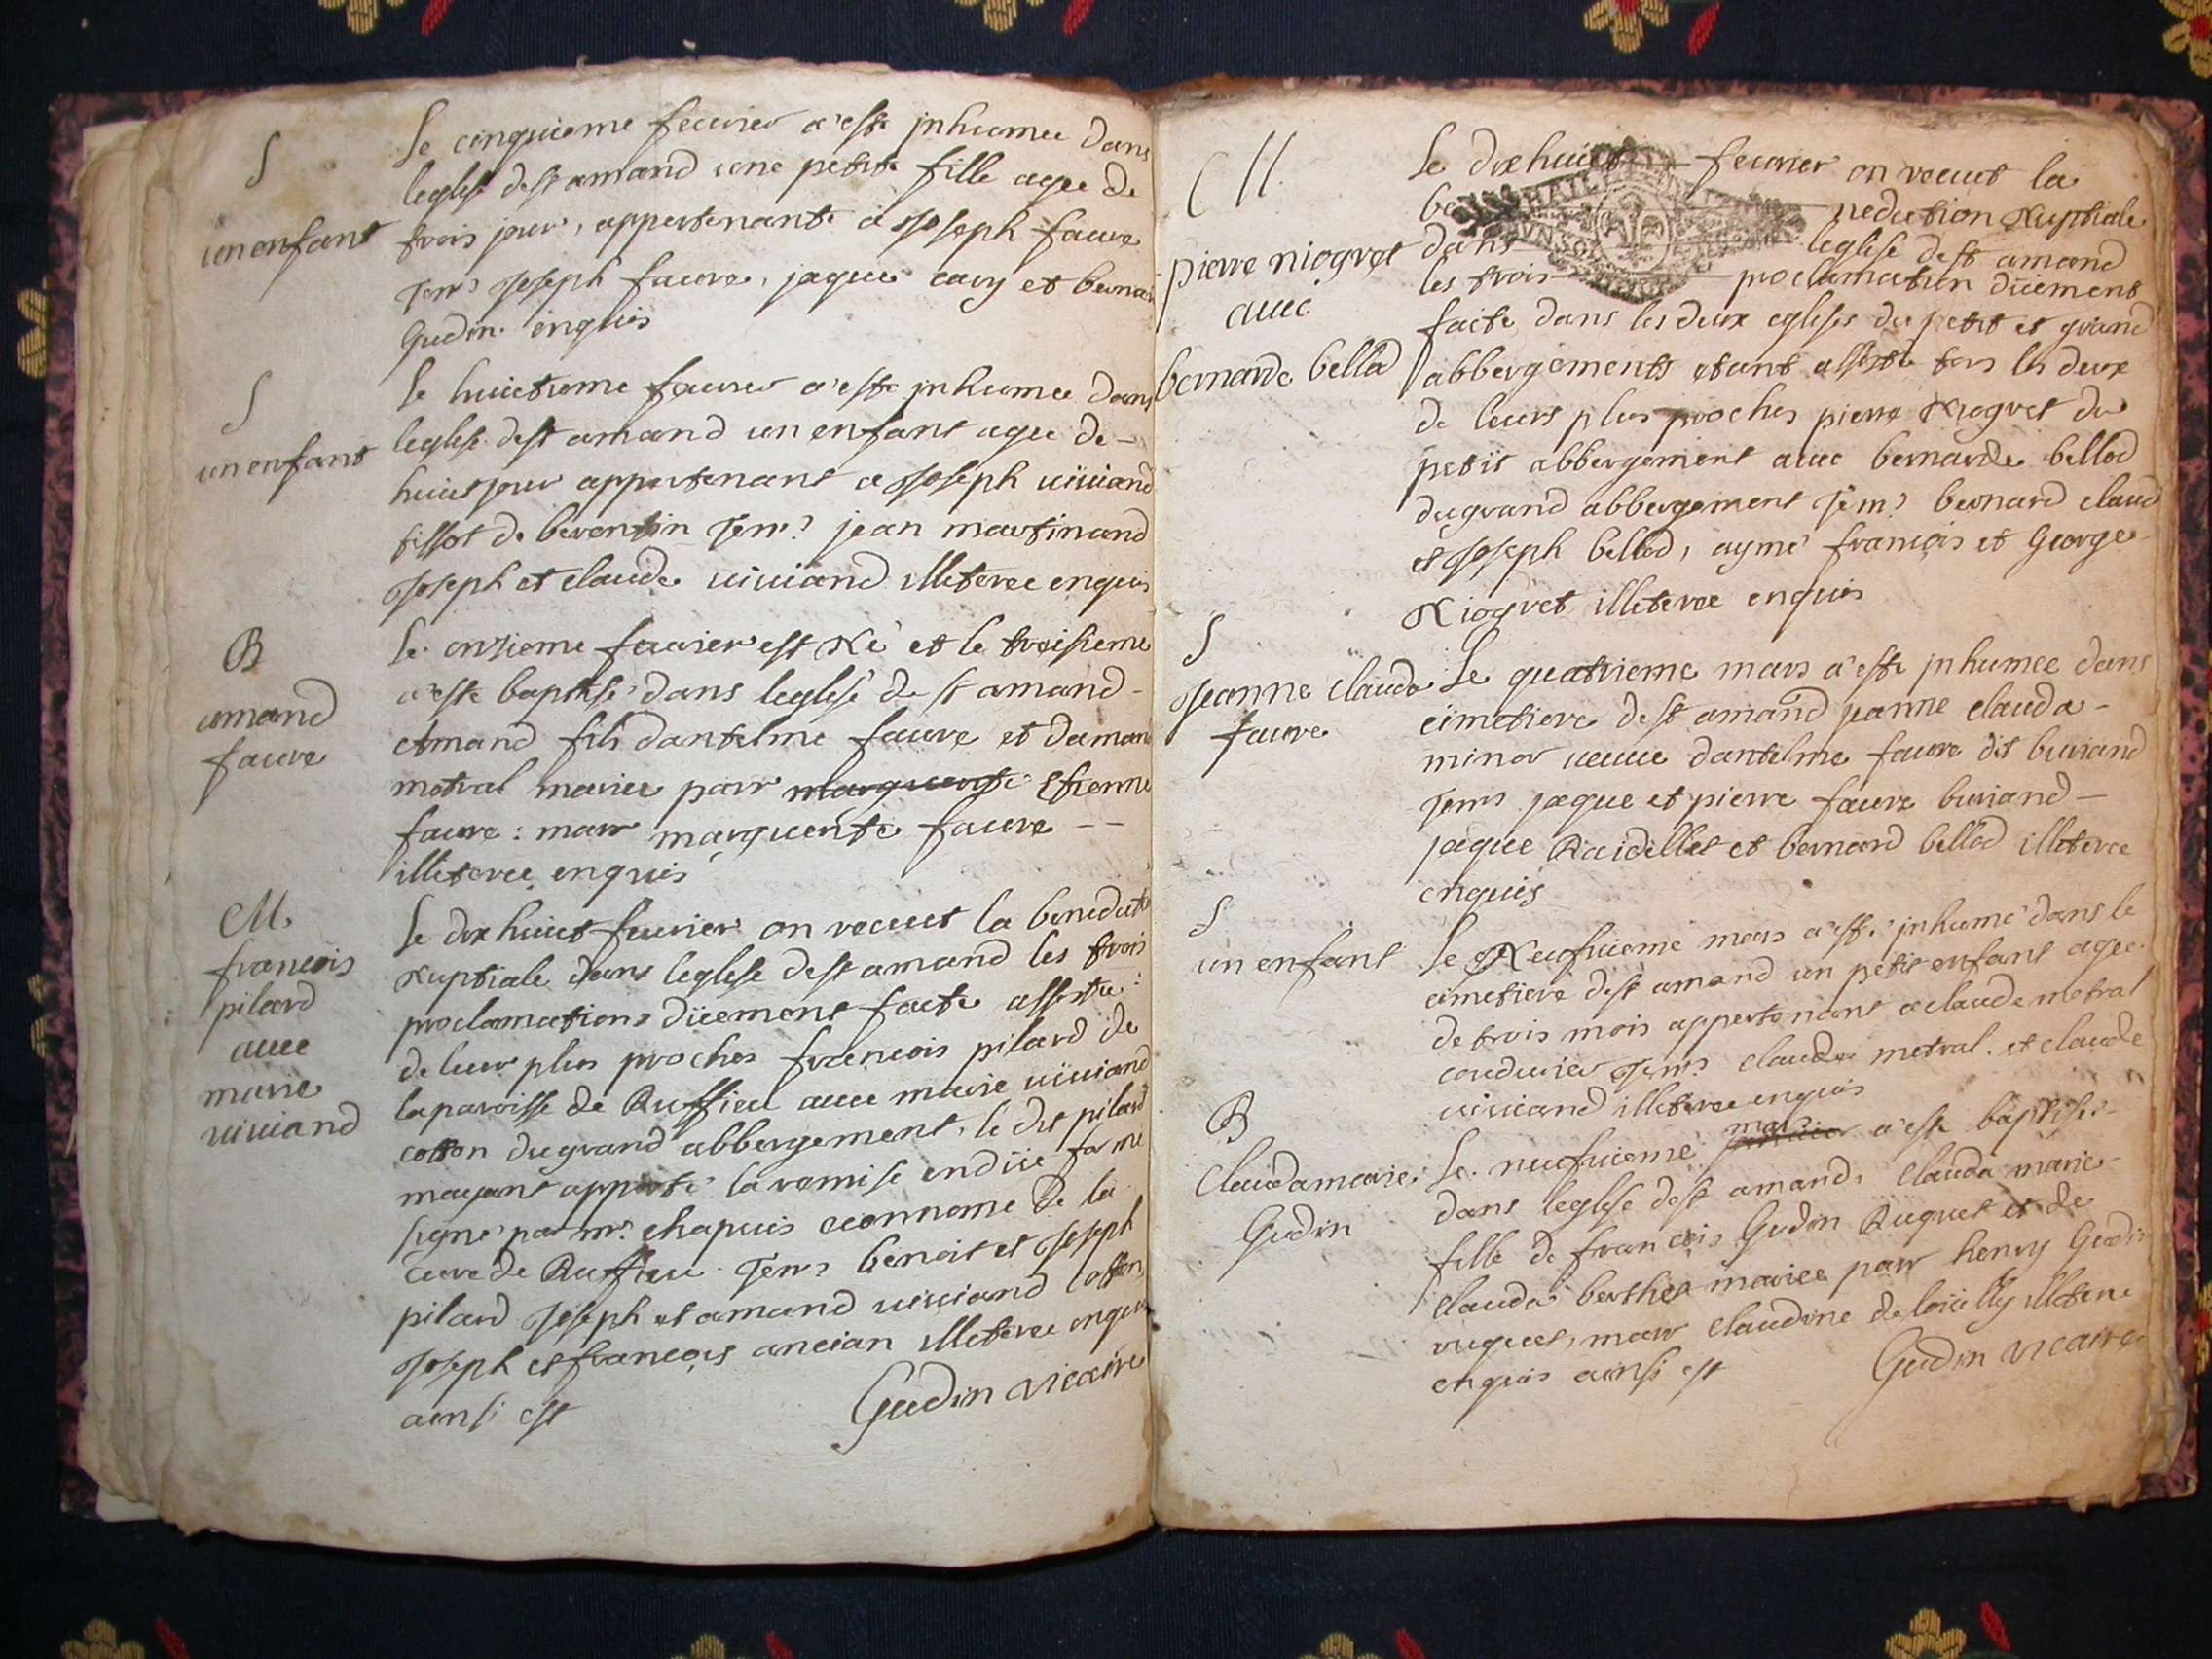 S
un enfant
le cinquieme feurier a'este jnhumee dans
leglise de st amand une petite fille agee de
trois jour, appartenante a Joseph faure
Tem? Joseph faure, jaque cary et bernar
Gudin enquis
S
un enfant
le huictieme feurier a'este jnhumee dans
leglise de st amand un enfant agee de-
huit jour appartenant a Joseph uiuiand
tissot de Joseph jean martinand
Joseph et claude uiuiand illeteree enquis
B
amand
faure
le onzieme feurier est Né et le troisieme
a'este baptisé dans leglise de st amand-
Amand fils dantelme faure et daman
metral mariee parr marguerite Estienne
faure: marr marguerite faure --
illeteree enquis
M.
francois
pilard
auec
marie
uiuiand
le dix huict feurier on receut la benedicti
Nuptiale dans leglise de st amand les trois
proclamations düement faite assistee:
de leur plus proches francois pilard de
la paroisse de Ruffieu auec marie uiuiand
cotton du grand abbergement, le dit pilard
mayant apporté la remise endüe forme
signé par mr. chapuis econnome de la
cure de Ruffieu. Tem? benoit et Joseph
pilard Joseph et amand uiuiand cotton
Joseph et francois ancian illeteree enquis
ainsi est
Gudin vicaire
M.
pierre niogret
auec
bernarde bellod
le dix huict feurier on receut la
be nediction Nuptiale
dans leglise de st amand
les trois proclamation düement
faite dans les deux eglises du petit et grand
abbergements etant assisté tous les deux
de leurs plus proches pierre Niogret du
petit abbergement auec bernarde bellod
du grand abbergement Tem? bernard claud
et Joseph bellod, aymé francois et George-
Niogret illiteree enquis
S
Jeanne clauda
faure
Le quatrieme mars a'este jnhumee dans
cimetiere de st amand jeanne clauda-
minor ueuue dantelme faure dit buriand
Tem? jaque et pierre faure buriand-
jaque Raidellet et bernard bellod illiteree
enquis
S
un enfant
le Neufuieme mars a'esté jnhumé dans le
cimetiere de st amand un petit enfant agee
de trois mois appartenant a claude metral
coudurier Tem? claude metral. et claude
uiuiand illiteree enquis
B
clauda marie
Gudin
le. neufuieme mars a'este baptisee-
dans leglise de st amand, clauda marie-
fille de francois Gudin Ruquet et de
clauda berthet mariee parr henry Gudin
ruquet, marr claudine de illitere
enquis ainsi est
Gudin vicaire